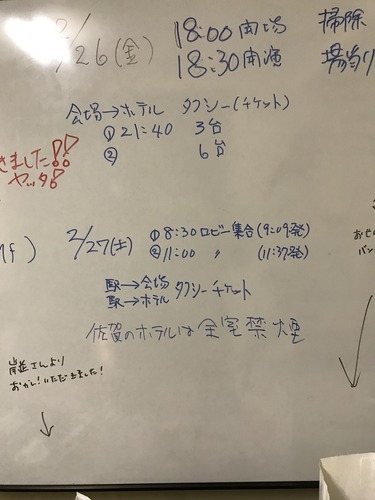 2/26(金) 18:00 開場 掃除
18:30 開演 場当り
会場→ホテル タクシー(チケット)
①21:40 3台
② 6台
きました!!
ヤッタ!
2/27(土) ①8:30ロビー集合(9:09発)
②11:00 〃 (11:37発)
駅→会場 タクシーチケット
駅→ホテル
佐賀のホテルは全室禁煙
さんより
おかし!いただきました!